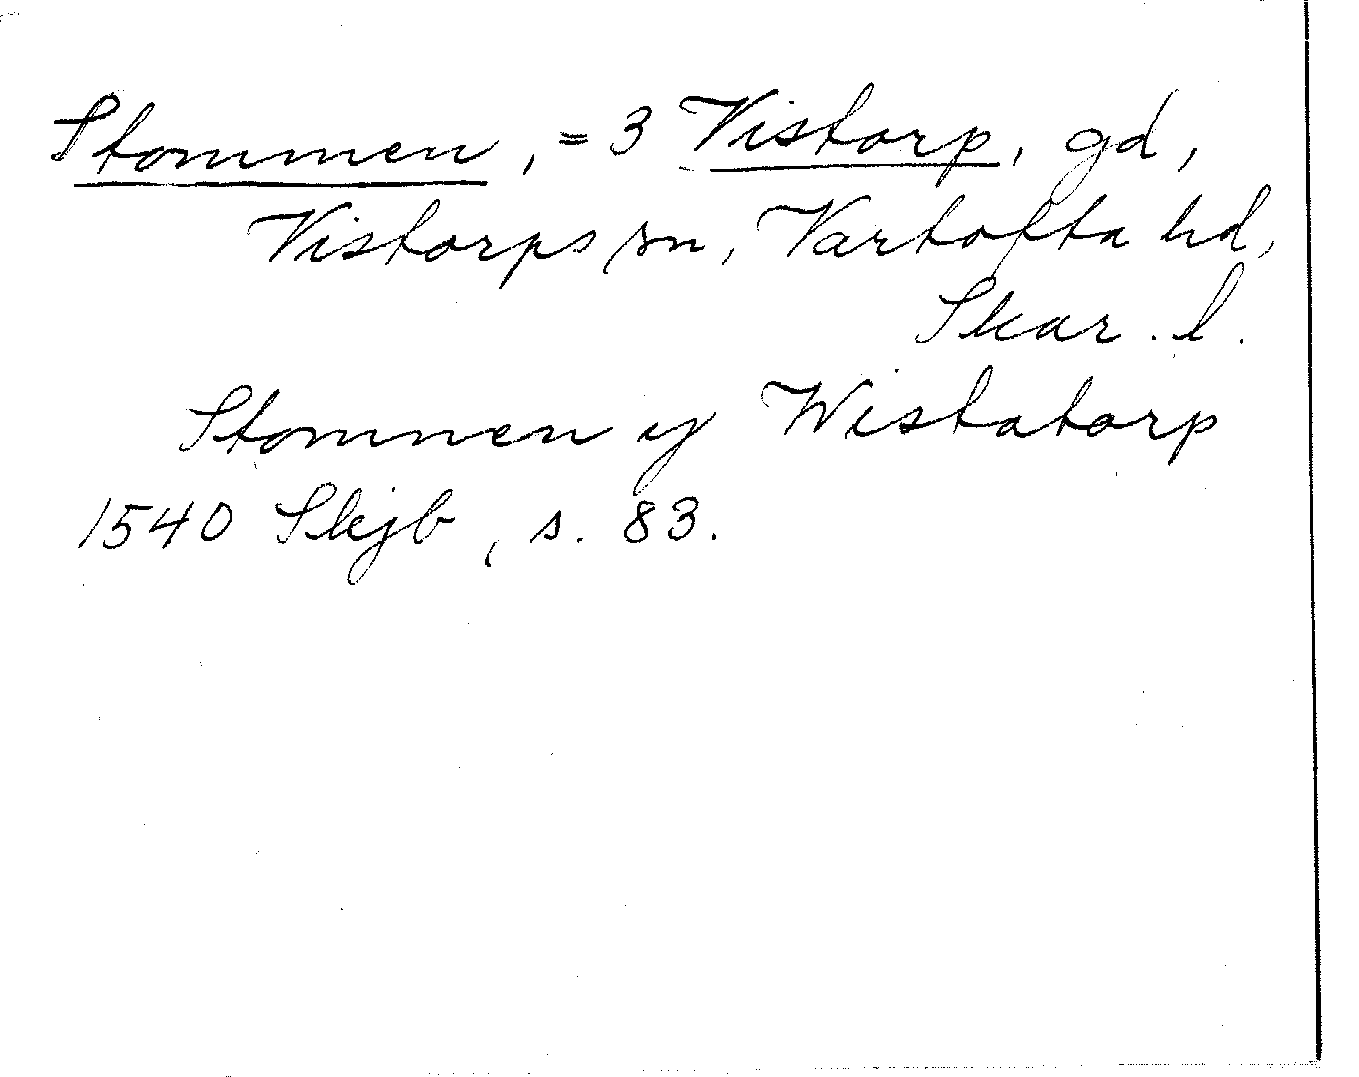 Stommen, = 3 Vistorp, gd,
Vistorps sn, Vartofta hd,
Skar. l.
Stommen y Wistatorp
1540 Skjb, s. 83.